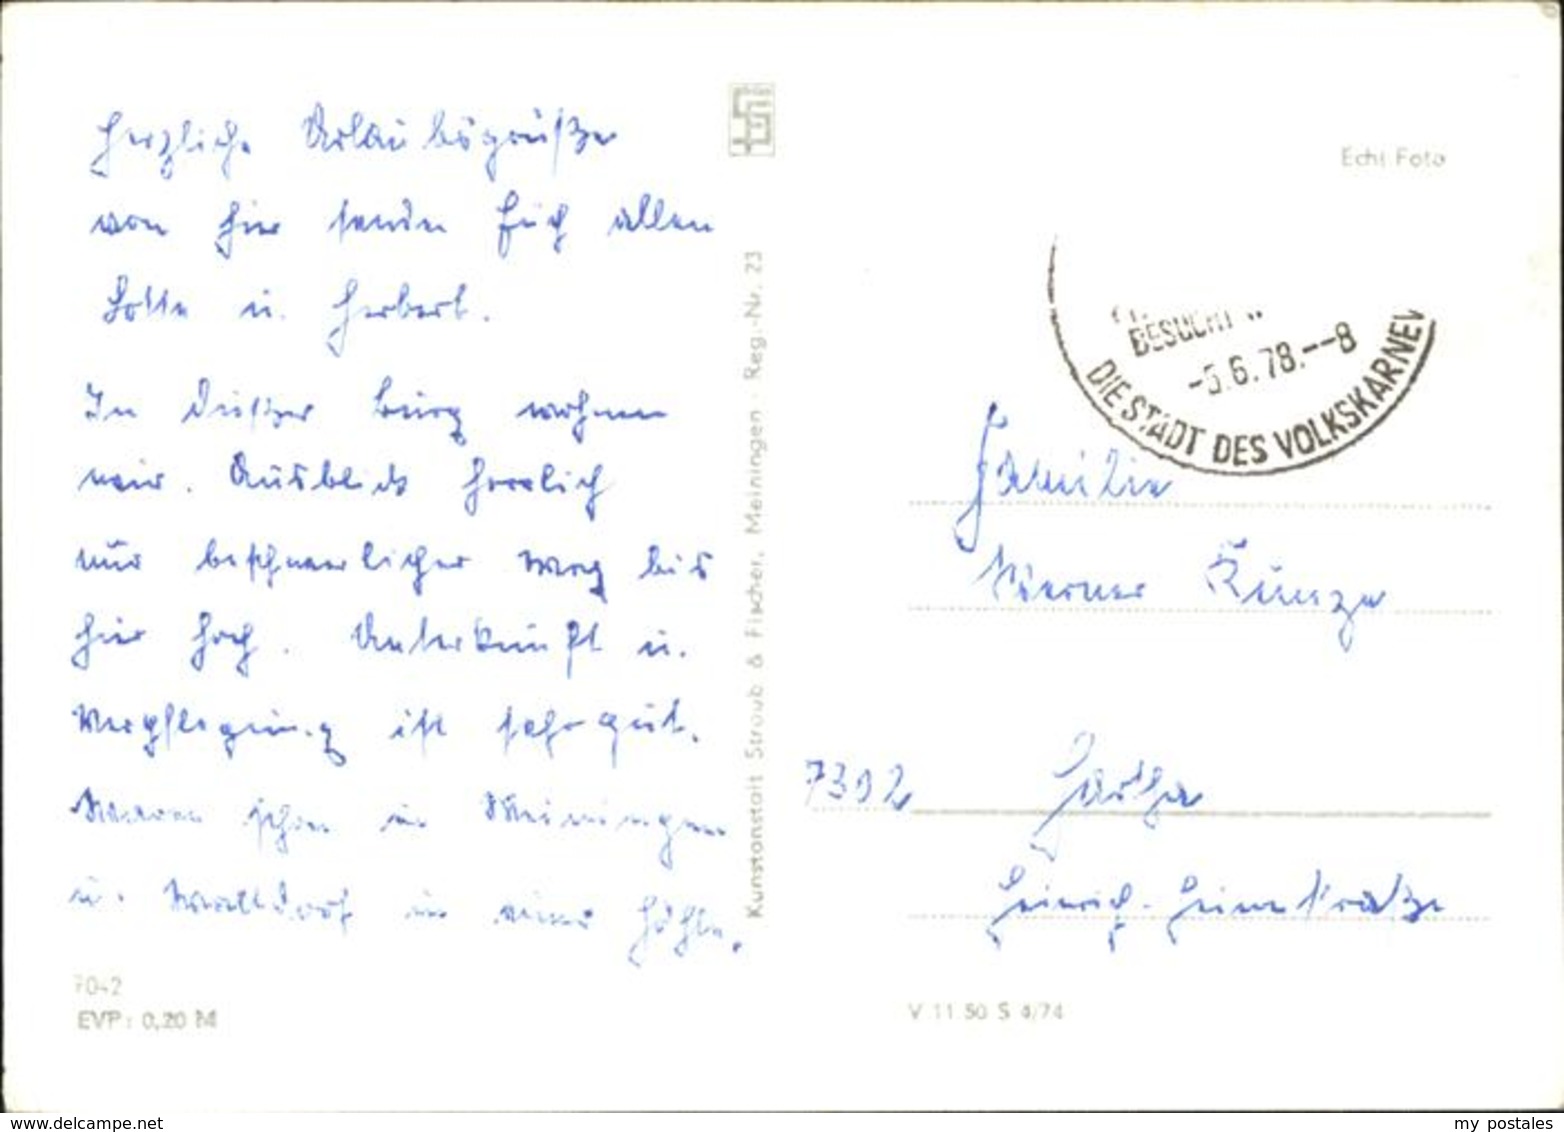 Herzliche Urlaubsgrüße
von hier senden Euch allen
Lotte u. Herbert.
In dieser Burg wohnen
wir. Ausblick herrlich
nur beschwerlicher Weg bis
hier hoch. Unterkunft u.
Verpflegung ist sehr gut.
Waren schon in Meiningen
u. Walldorf in einer Höhle.
7042
EVP: 0,20 M
Kunstanstalt Straub & Fischer, Meiningen · Reg.-Nr. 23
Echt Foto
BESUCHT
-5.6.78.--8
DIE STADT DES VOLKSKARNEV
Familie
Werner Kunze
7302 Hartha
Heinrich-Heinestraße
V 11 50 S 4/74
www.delcampe.net
my_postales